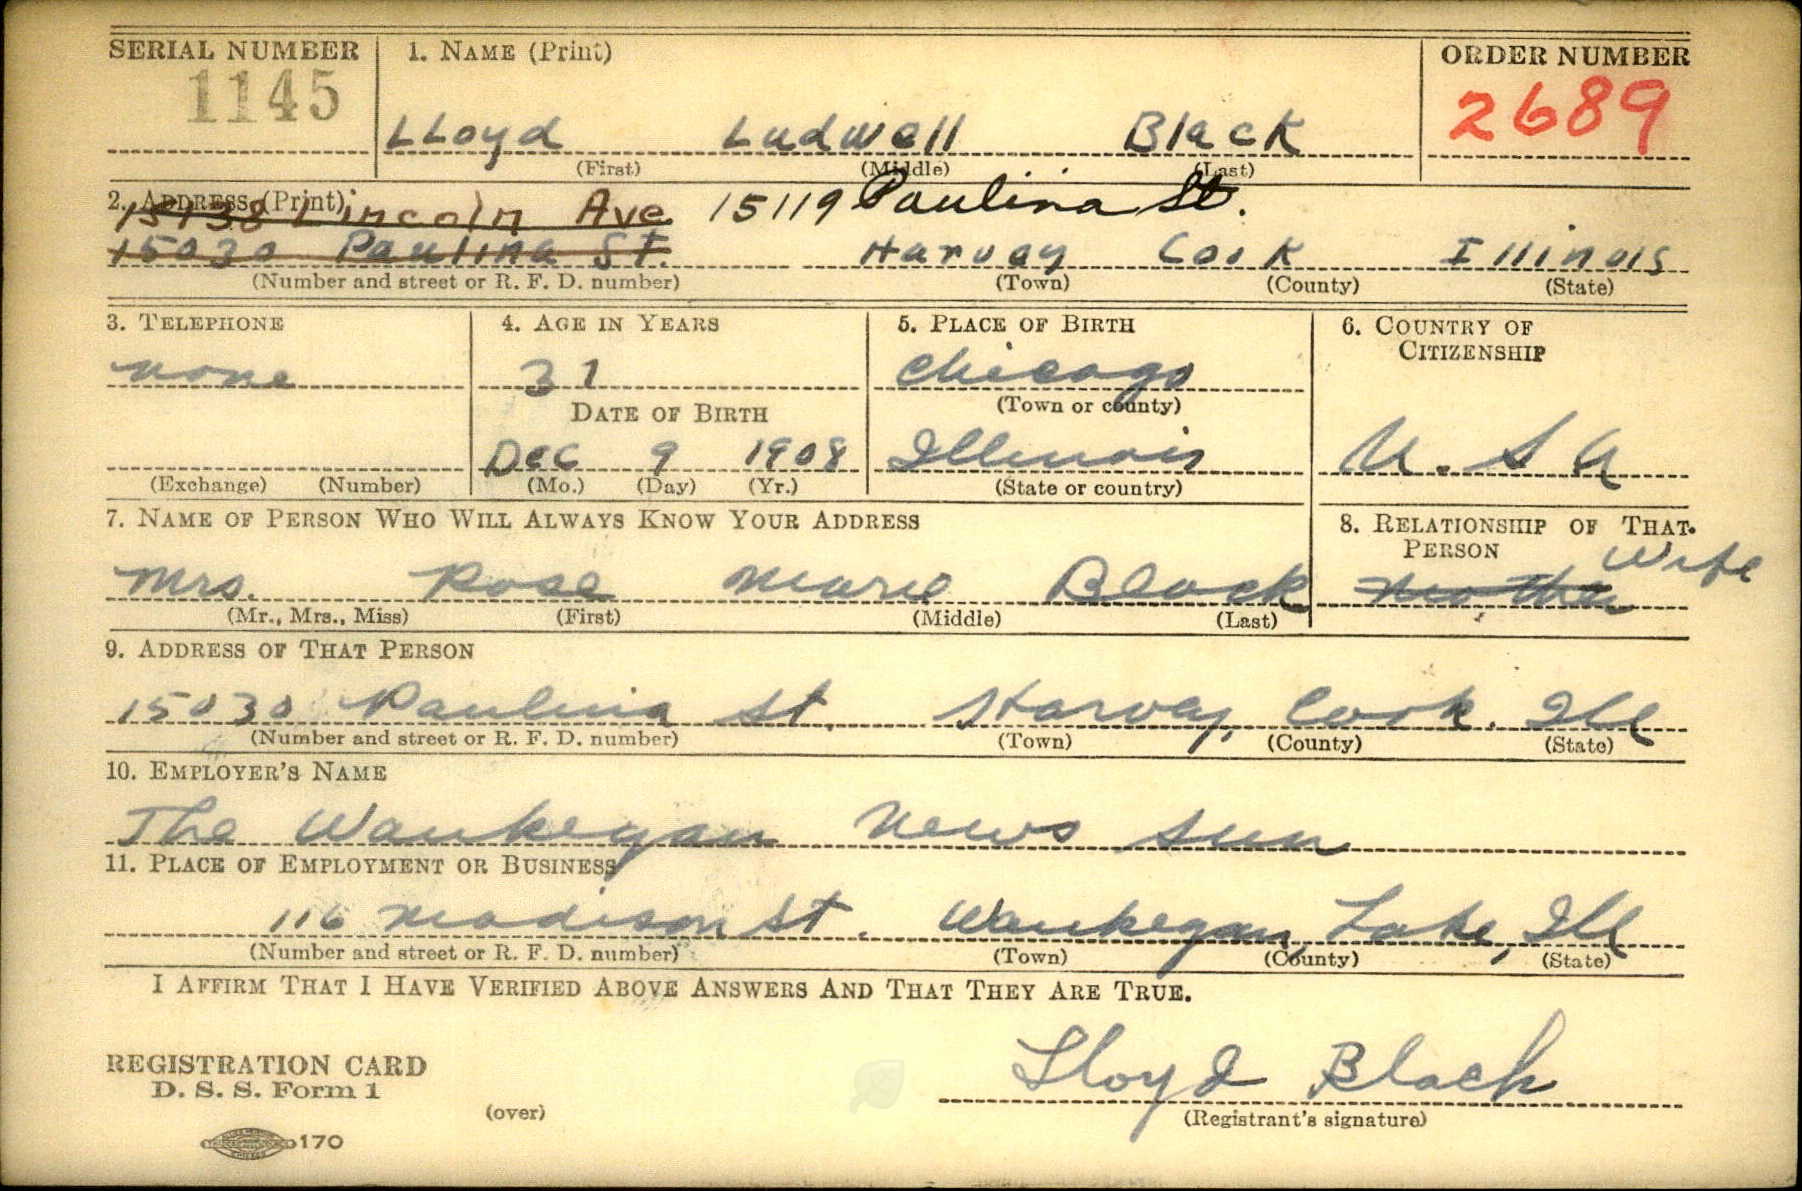 SERIAL NUMBER 1. NAME (Print) ORDER NUMBER
1145 2689
LLoyd Ludwell Black
(First) (Middle) (Last)
2. ADDRESS (Print)
15138 Lincoln Ave 15119 Paulina St.
15030 Paulina St. Harvey Cook Illinois
(Number and street or R. F. D. number) (Town) (County) (State)
3. TELEPHONE 4. AGE IN YEARS 5. PLACE OF BIRTH 6. COUNTRY OF
CITIZENSHIP
none 31 Chicago
DATE OF BIRTH (Town or county)
Dec 9 1908 Illinois U. S A
(Exchange) (Number) (Mo.) (Day) (Yr.) (State or country)
7. NAME OF PERSON WHO WILL ALWAYS KNOW YOUR ADDRESS 8. RELATIONSHIP OF THAT
PERSON Wife
Mrs. Rose Marie Black Mother
(Mr., Mrs., Miss) (First) (Middle) (Last)
9. ADDRESS OF THAT PERSON
15030 Paulina St. Harvey, Cook. Ill
(Number and street or R. F. D. number) (Town) (County) (State)
10. EMPLOYER'S NAME
The Waukegan News Sun
11. PLACE OF EMPLOYMENT OR BUSINESS
116 Madison St. Waukegan, Lake, Ill
(Number and street or R. F. D. number) (Town) (County) (State)
I AFFIRM THAT I HAVE VERIFIED ABOVE ANSWERS AND THAT THEY ARE TRUE.
REGISTRATION CARD
D. S. S. Form 1
Lloyd Black
(over) (Registrant's signature)
170